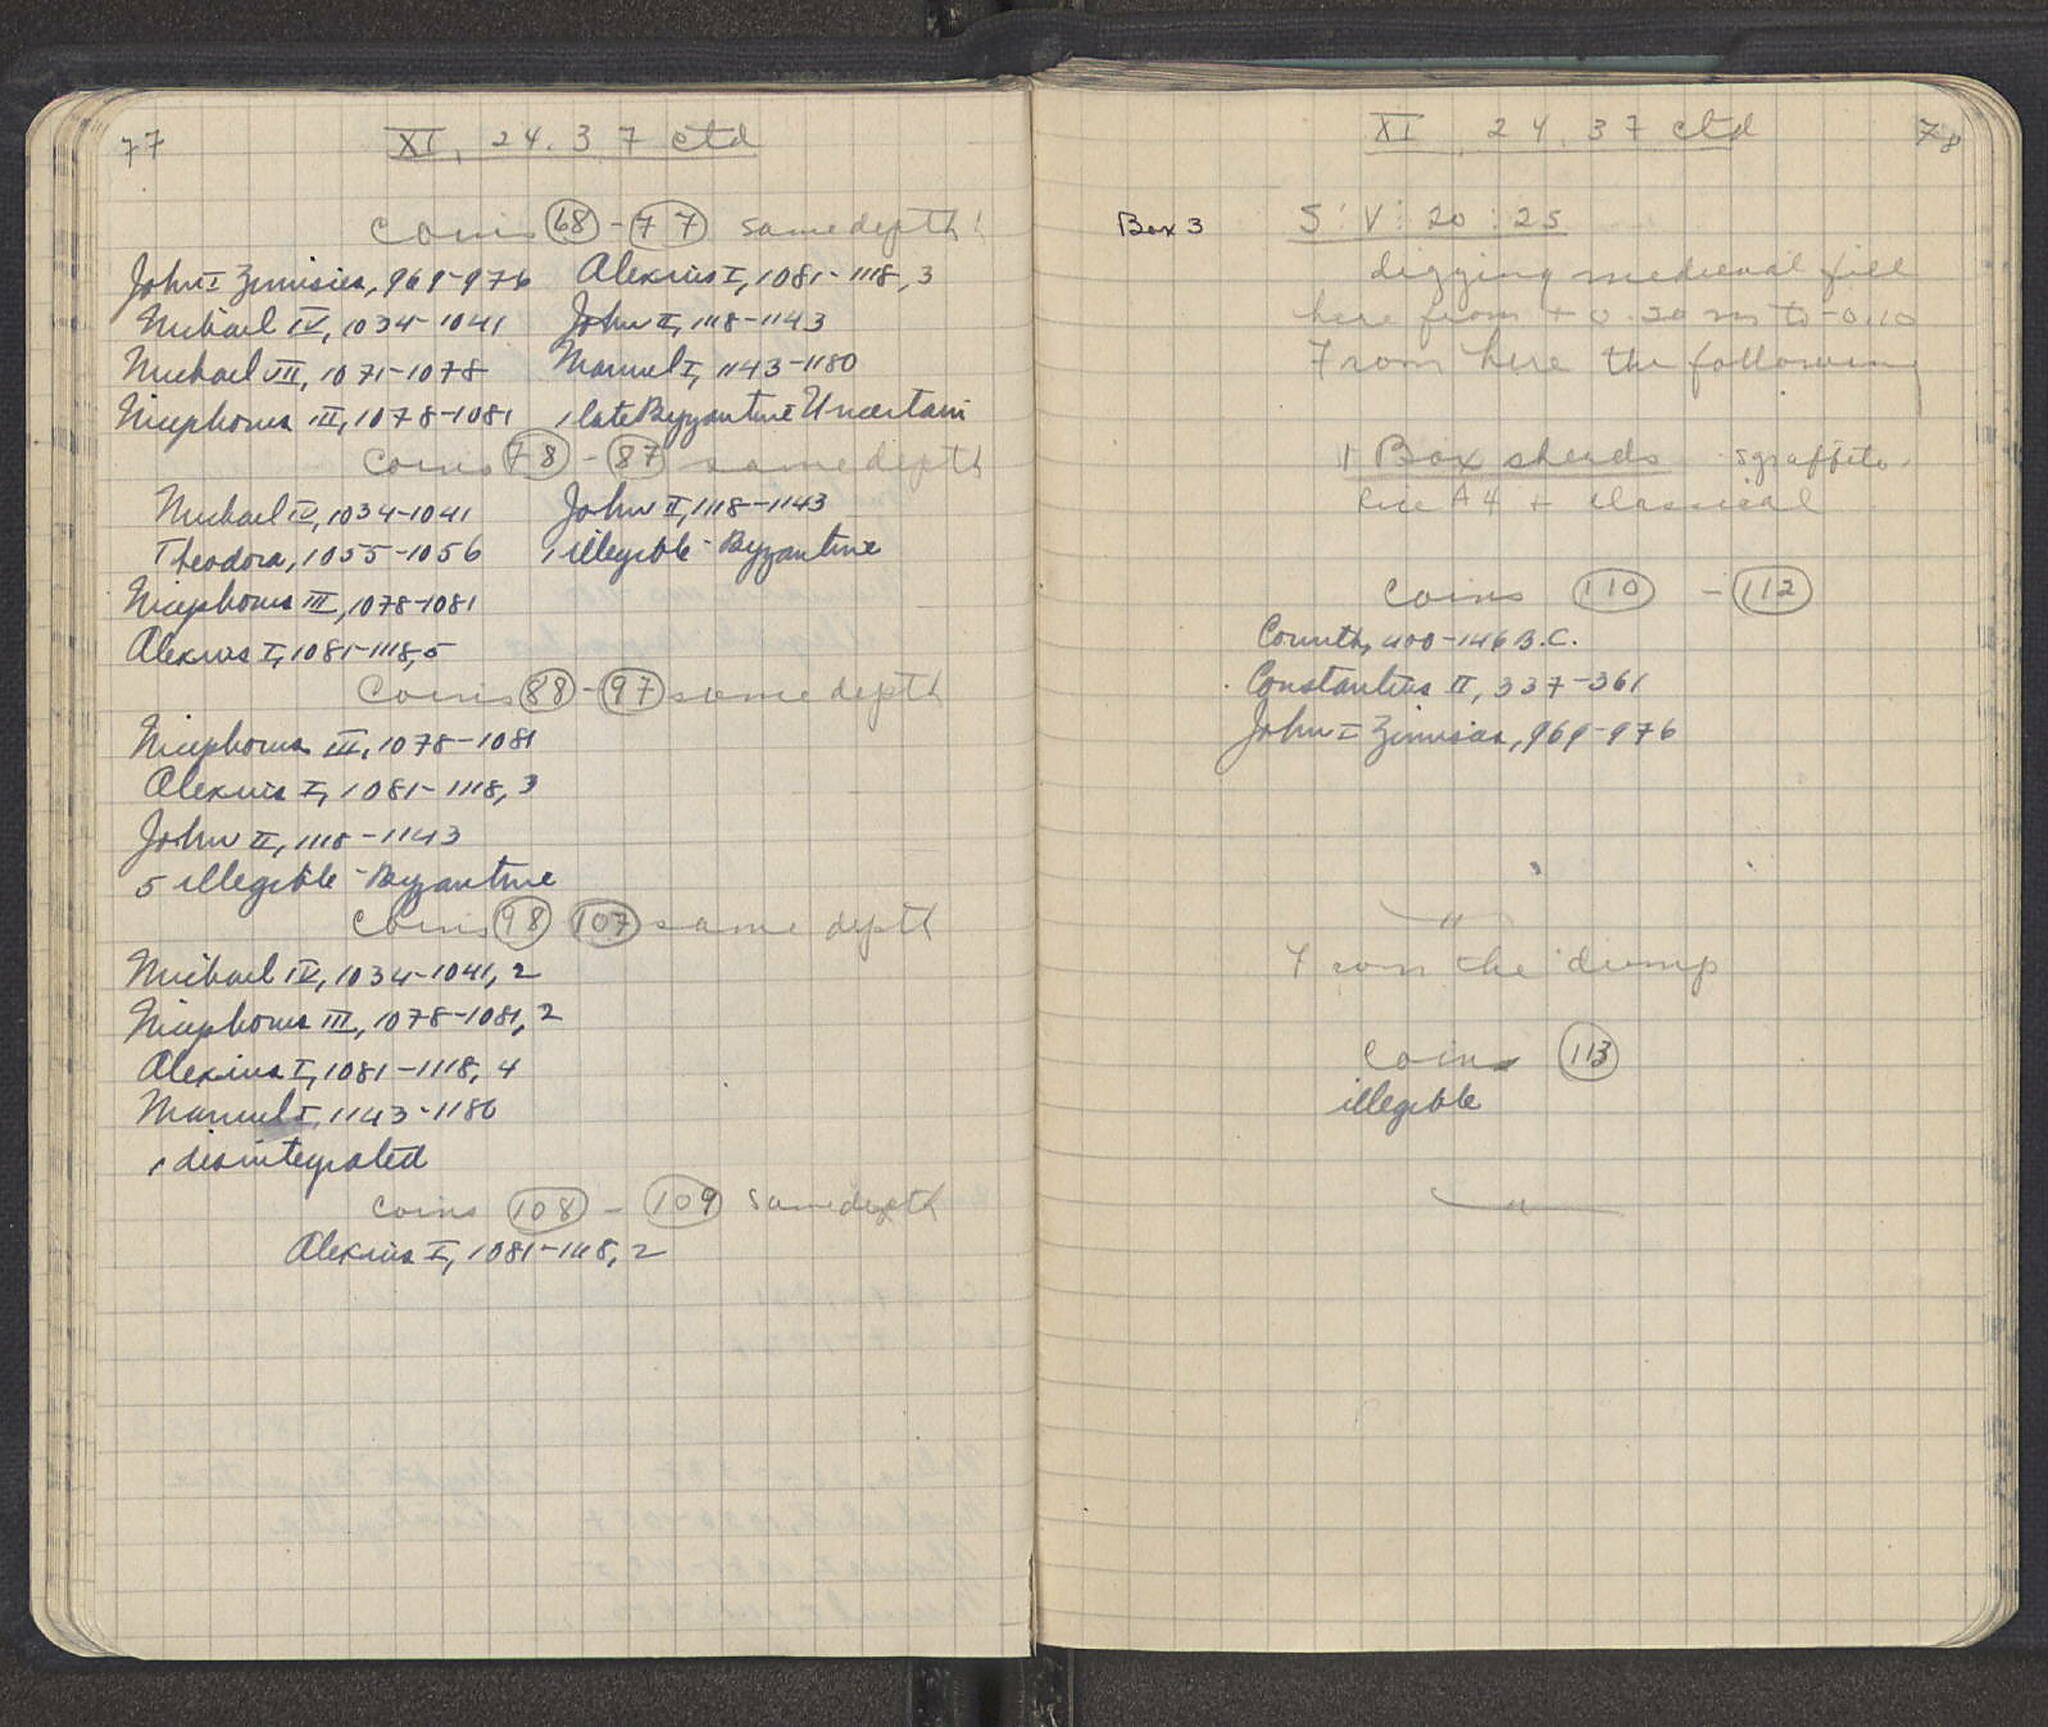 77
XI, 24.37 ctd
Coins 68 - 77 same depth
John I Zimisces, 969-976 Alexius I, 1081-1118, 3
Michael IV, 1034-1041 John II, 1118-1143
Michael VII, 1071-1078 Manuel I, 1143-1180
Nicephorus III, 1078-1081 1 late Byzantine Uncertain
Coins 78 - 87 same depth
Michael IV, 1034-1041 John II, 1118-1143
Theodora, 1055-1056 1 illegible - Byzantine
Nicephorus III, 1078-1081
Alexius I, 1081-1118, 5
Coins 88 - 97 same depth
Nicephorus III, 1078-1081
Alexius I, 1081-1118, 3
John II, 1118-1143
5 illegible - Byzantine
Coins 98 107 same depth
Michael IV, 1034-1041, 2
Nicephorus III, 1078-1081, 2
Alexius I, 1081-1118, 4
Manuel I, 1143-1180
1 disintegrated
Coins 108 - 109 same depth
Alexius I, 1081-1118, 2
78
XI 24.37 ctd
Box 3 S:V:20:25
digging medieval fill
here from +0.20 m to -0.10
From here the following
1 Box sherds sgraffito
Rice A4 + classical
Coins 110 - 112
Corinth, 400-146 B.C.
Constantius II, 337-361
John I Zimisces, 969-976
"
From the dump
Coins 113
illegible
"